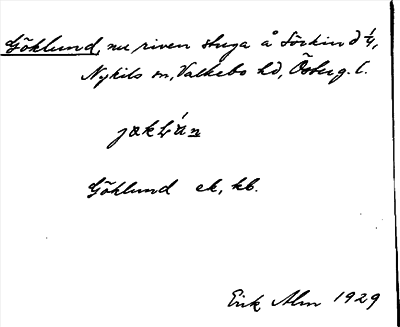 Göklund, nu riven stuga å Sörkind 1/4,
Nykils sn, Valkebo hd, Österg. l.
jøkḷán
Göklund ek, kb.
Erik Alm 1929